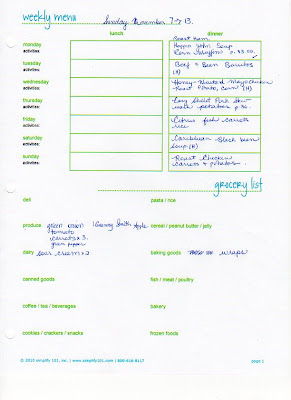 weekly menu
Sunday November 7 → 13.
lunch
dinner
Roast Ham
monday
activities:
Hoppin John Soup
Corn
tuesday
activities:
Beef & Bean Burritos
(H)
wednesday
activities:
Honey-Mustard Mayo Chicken
Roast Potato, Corn (H)
thursday
activities:
Pork Stew
with potatoes
friday
activities:
Citrus fish carrots
rice
saturday
activities:
Caribbean Black bean
Soup (H)
sunday
activities:
Roast Chicken
Carrots & potatoes.
grocery list
deli
pasta / rice
produce
green onion
1 Granny Smith Apple
tomato
carrots x 3.
green peppers
cereal / peanut butter / jelly
dairy
sour cream x 2
baking goods
wraps
canned goods
fish / meat / poultry
coffee / tea / beverages
bakery
cookies / crackers / snacks
frozen foods
© 2010 simplify 101, inc. | www.simplify101.com | 800-616-8117
page 1